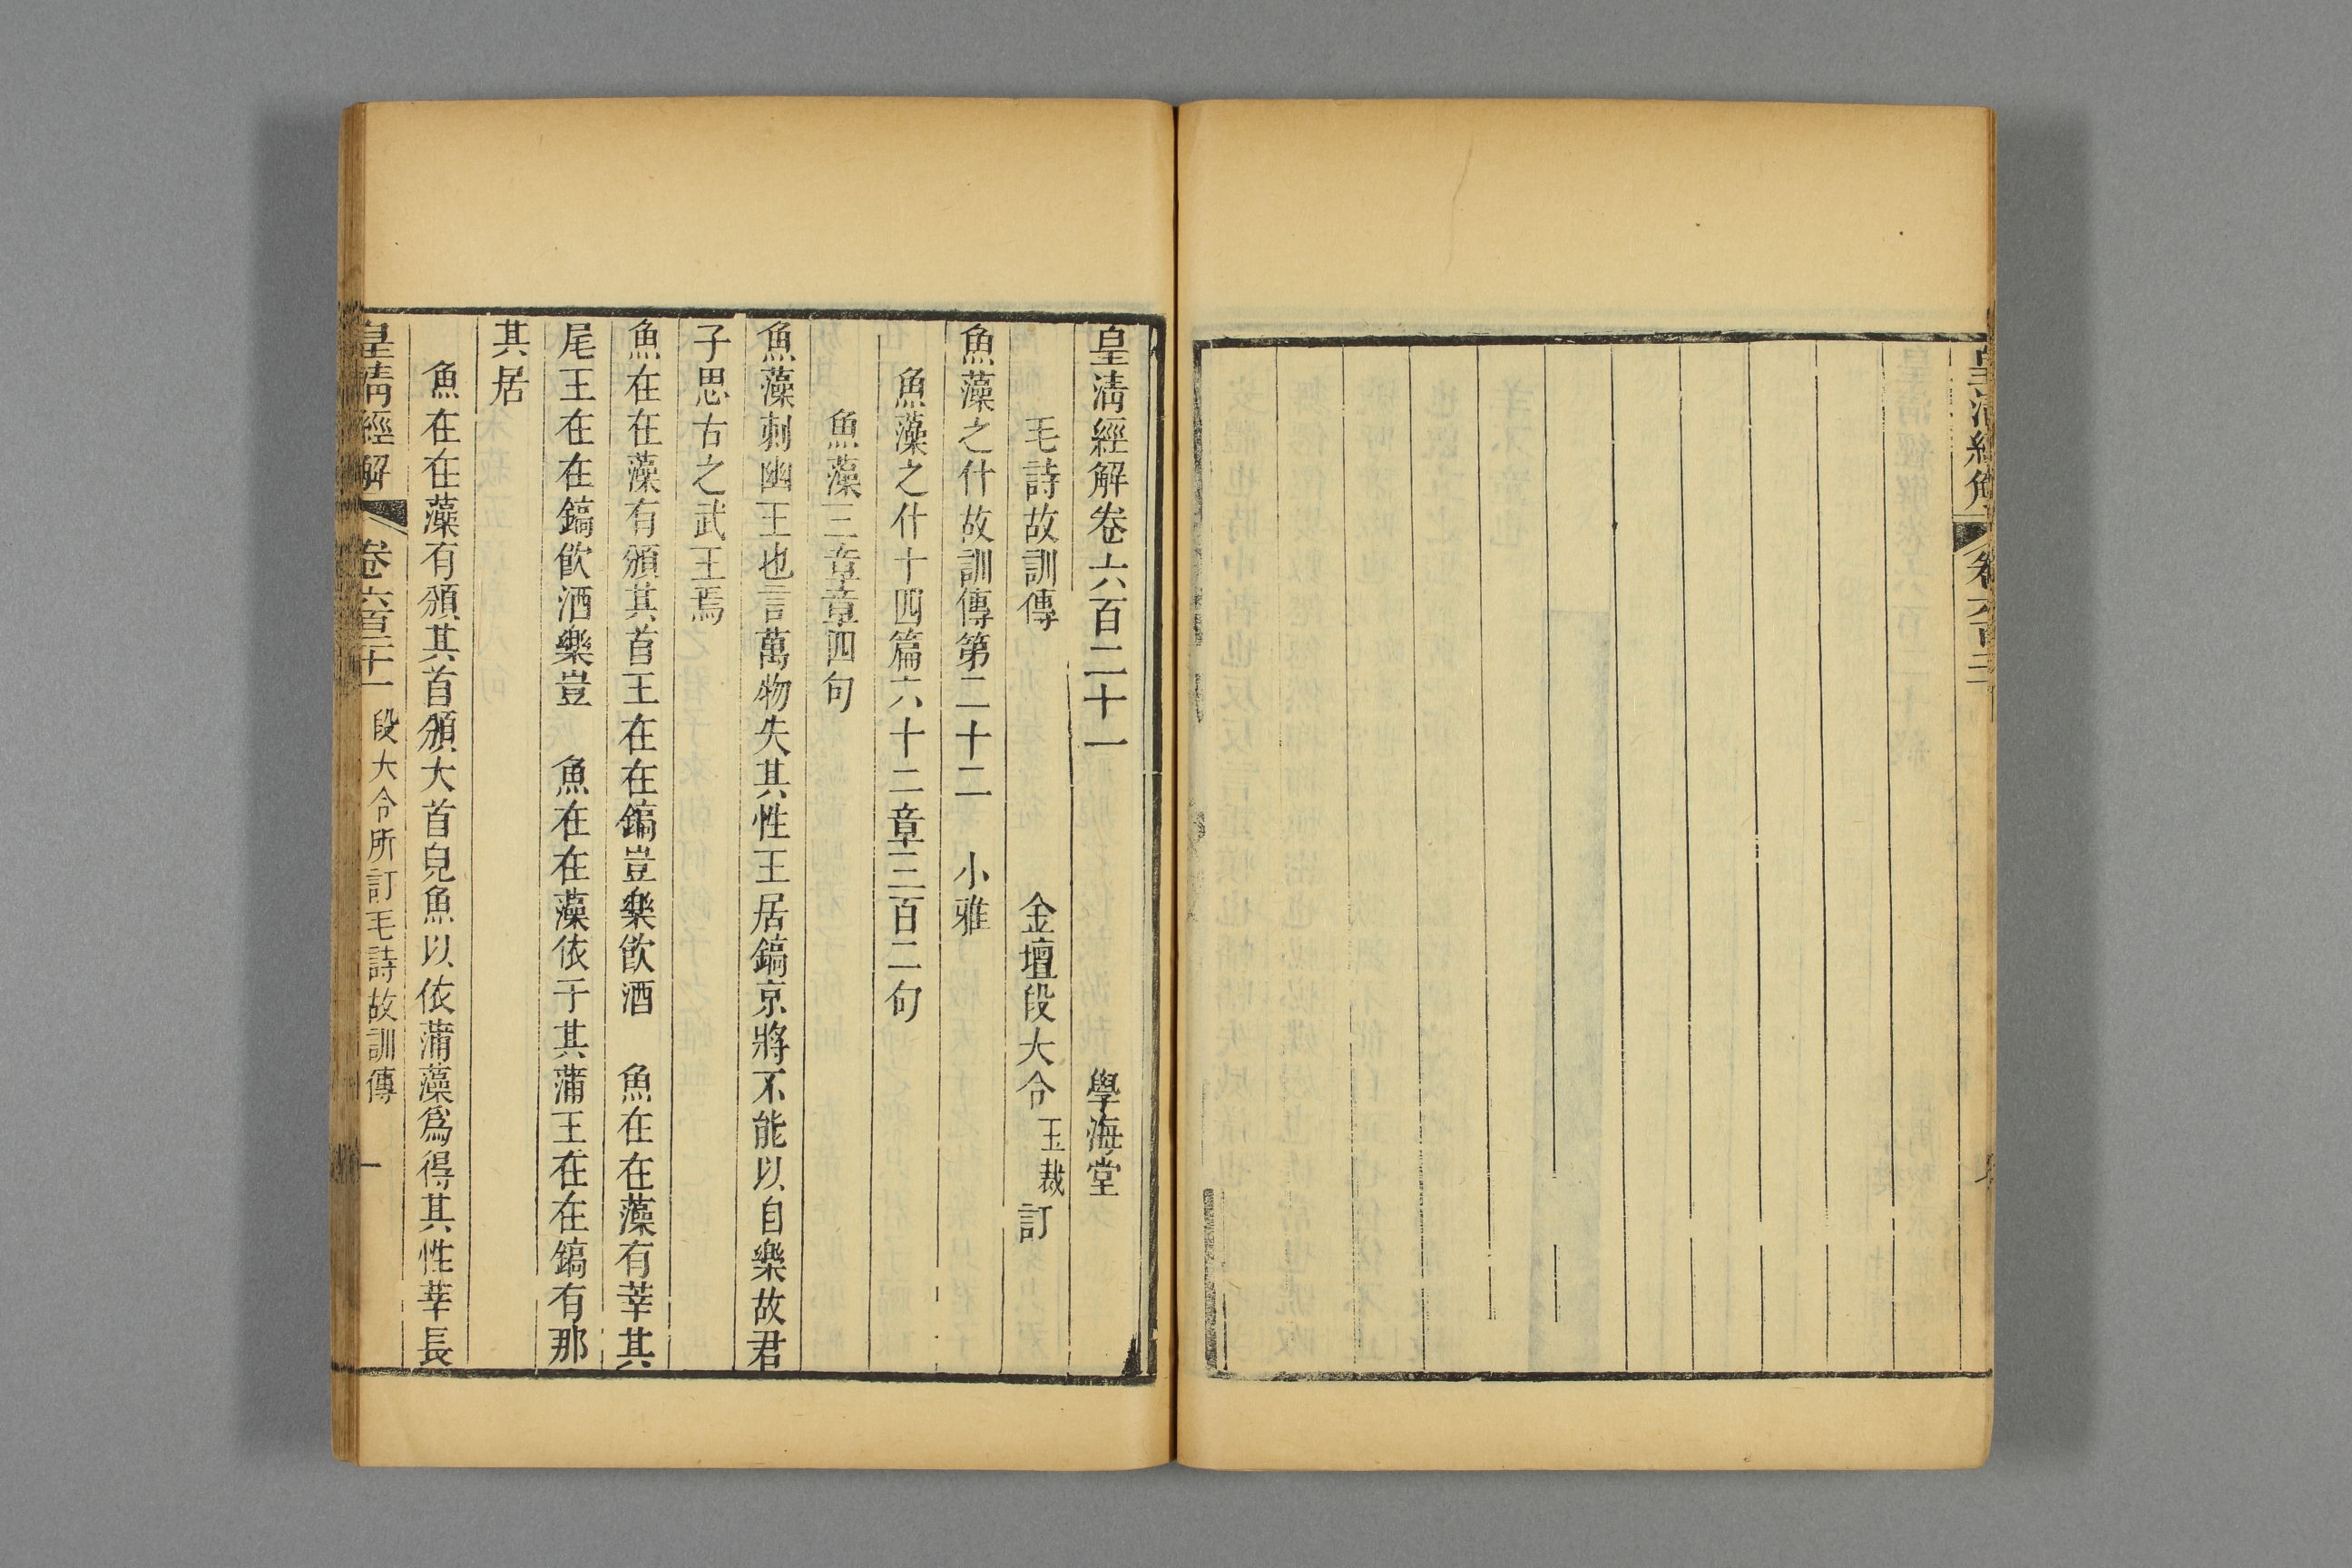 皇清經解卷六百二十一　學海堂
毛詩故訓傳　金壇段大令玉裁訂
魚藻之什故訓傳第二十二　小雅
魚藻之什十四篇六十二章三百二句
魚藻三章章四句
魚藻刺幽王也言萬物失其性王居鎬京將不能以自樂故君
子思古之武王焉
魚在在藻有頒其首王在在鎬豈樂飮酒　魚在在藻有莘其
尾王在在鎬飮酒樂豈　魚在在藻依于其蒲王在在鎬有那
其居
魚在在藻有頒其首頒大首皃魚以依蒲藻爲得其性莘長
皇清經解　卷六百二十一　段大令所訂毛詩故訓傳　一